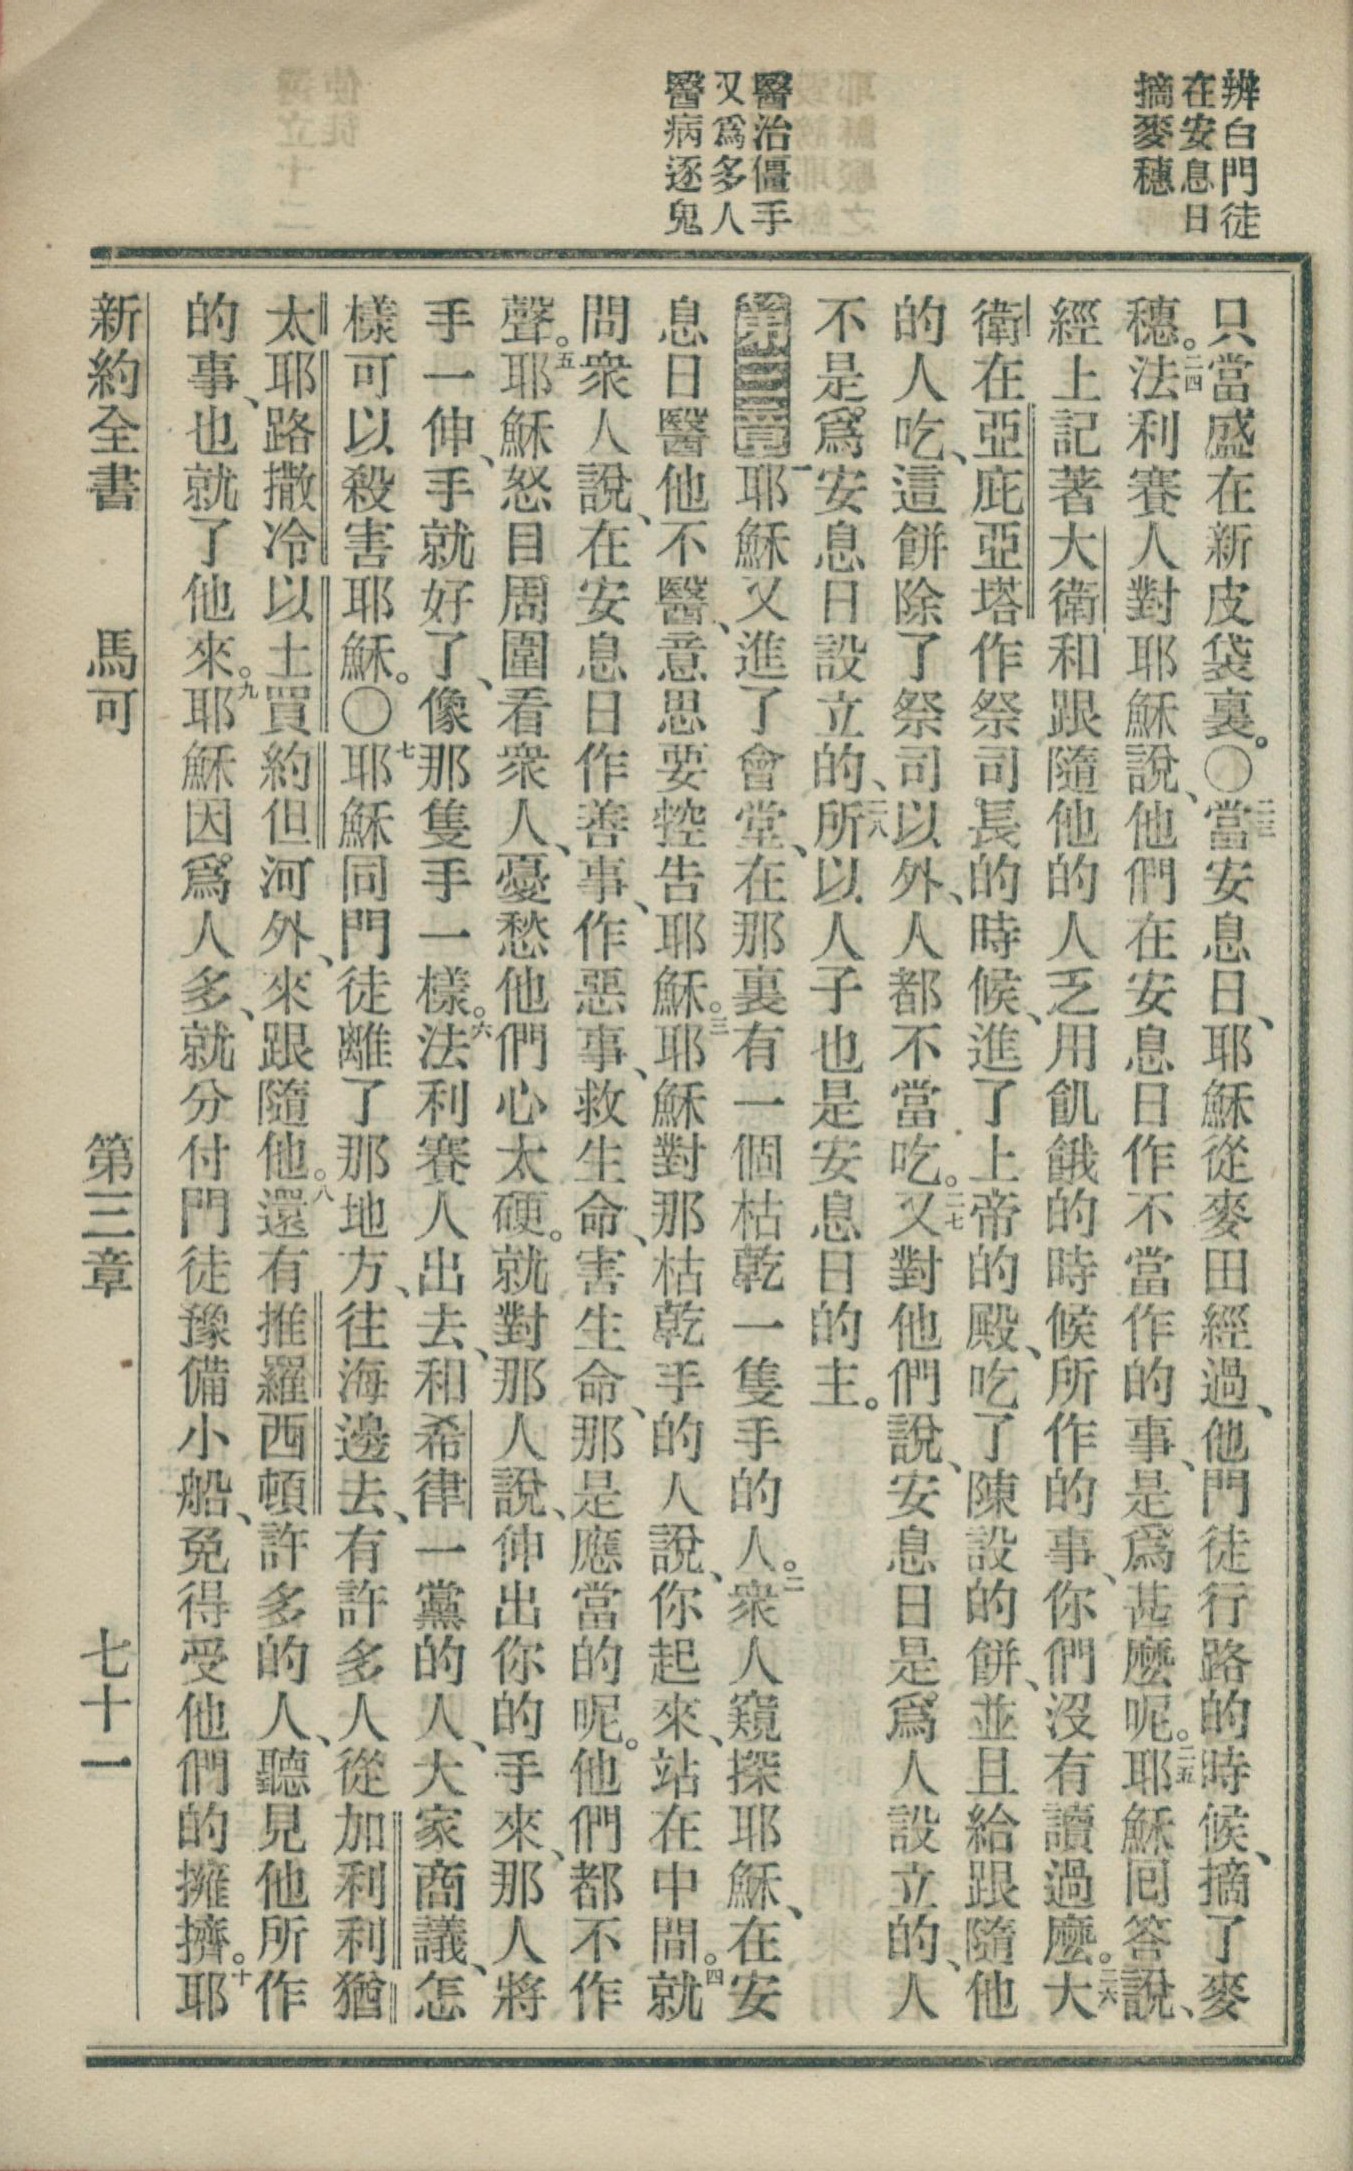 辨白門徒
在安息日
摘麥穗
醫治僵手
又爲多人
醫病逐鬼
只當盛在新皮袋裏。〇二三當安息日、耶穌從麥田經過、他門徒行路的時候、摘了麥
穗。二四法利賽人對耶穌說、他們在安息日作不當作的事、是爲甚麼呢。二五耶穌回答說、
經上記著大衛和跟隨他的人乏用飢餓的時候所作的事、你們沒有讀過麼。二六大
衛在亞庇亞塔作祭司長的時候、進了上帝的殿、吃了陳設的餅、並且給跟隨他
的人吃、這餅除了祭司以外、人都不當吃。二七又對他們說、安息日是爲人設立的、人
不是爲安息日設立的、二八所以人子也是安息日的主。
第三章一耶穌又進了會堂、在那裏有一個枯乾一隻手的人。二衆人窺探耶穌、在安
息日醫他不醫、意思要控告耶穌。三耶穌對那枯乾手的人說、你起來、站在中間。四就
問衆人說、在安息日作善事、作惡事、救生命、害生命、那是應當的呢。他們都不作
聲。五耶穌怒目周圍看衆人、憂愁他們心太硬。就對那人說、伸出你的手來、那人將
手一伸、手就好了、像那隻手一樣。六法利賽人出去、和希律一黨的人、大家商議、怎
樣可以殺害耶穌。〇七耶穌同門徒離了那地方、往海邊去、有許多人從加利利猶
太耶路撒冷以土買約但河外、來跟隨他。八還有推羅西頓許多的人、聽見他所作
的事、也就了他來。九耶穌因爲人多、就分付門徒豫備小船、免得受他們的擁擠。十耶
新約全書　馬可　第三章　七十一